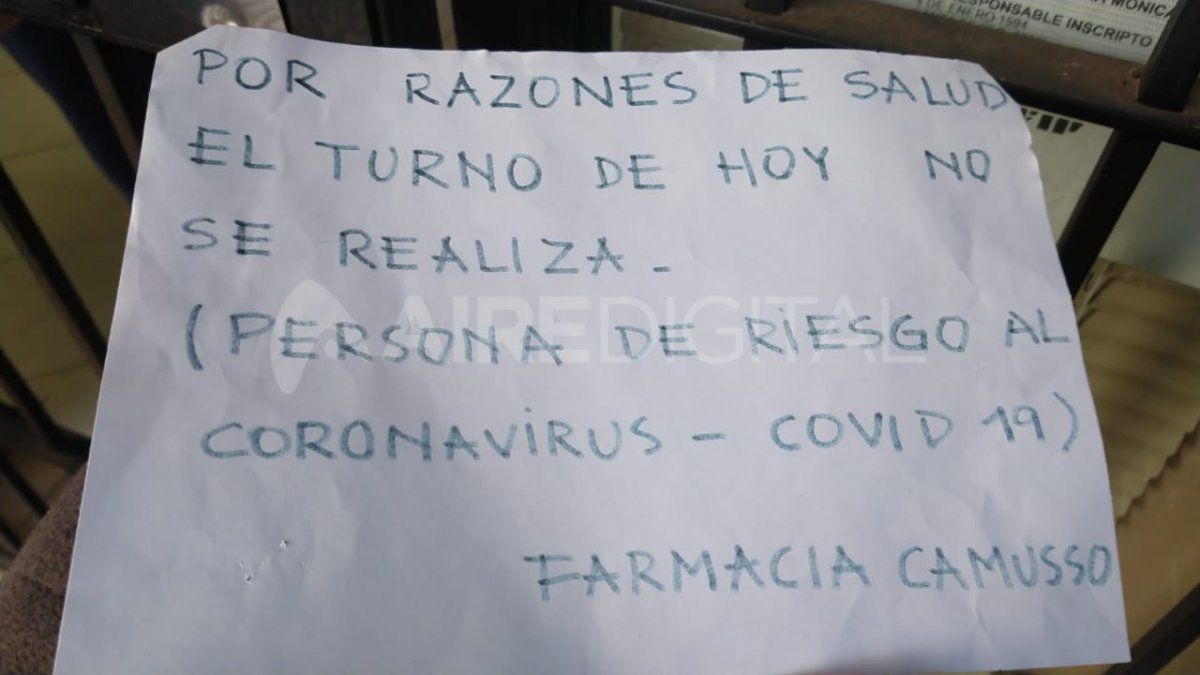 MONICA
RESPONSABLE INSCRIPTO
DE ENERO 1594
POR RAZONES DE SALUD
EL TURNO DE HOY NO
SE REALIZA -
(PERSONA DE RIESGO AL
CORONAVIRUS - COVID 19)
FARMACIA CAMUSSO
AIREDIGITAL